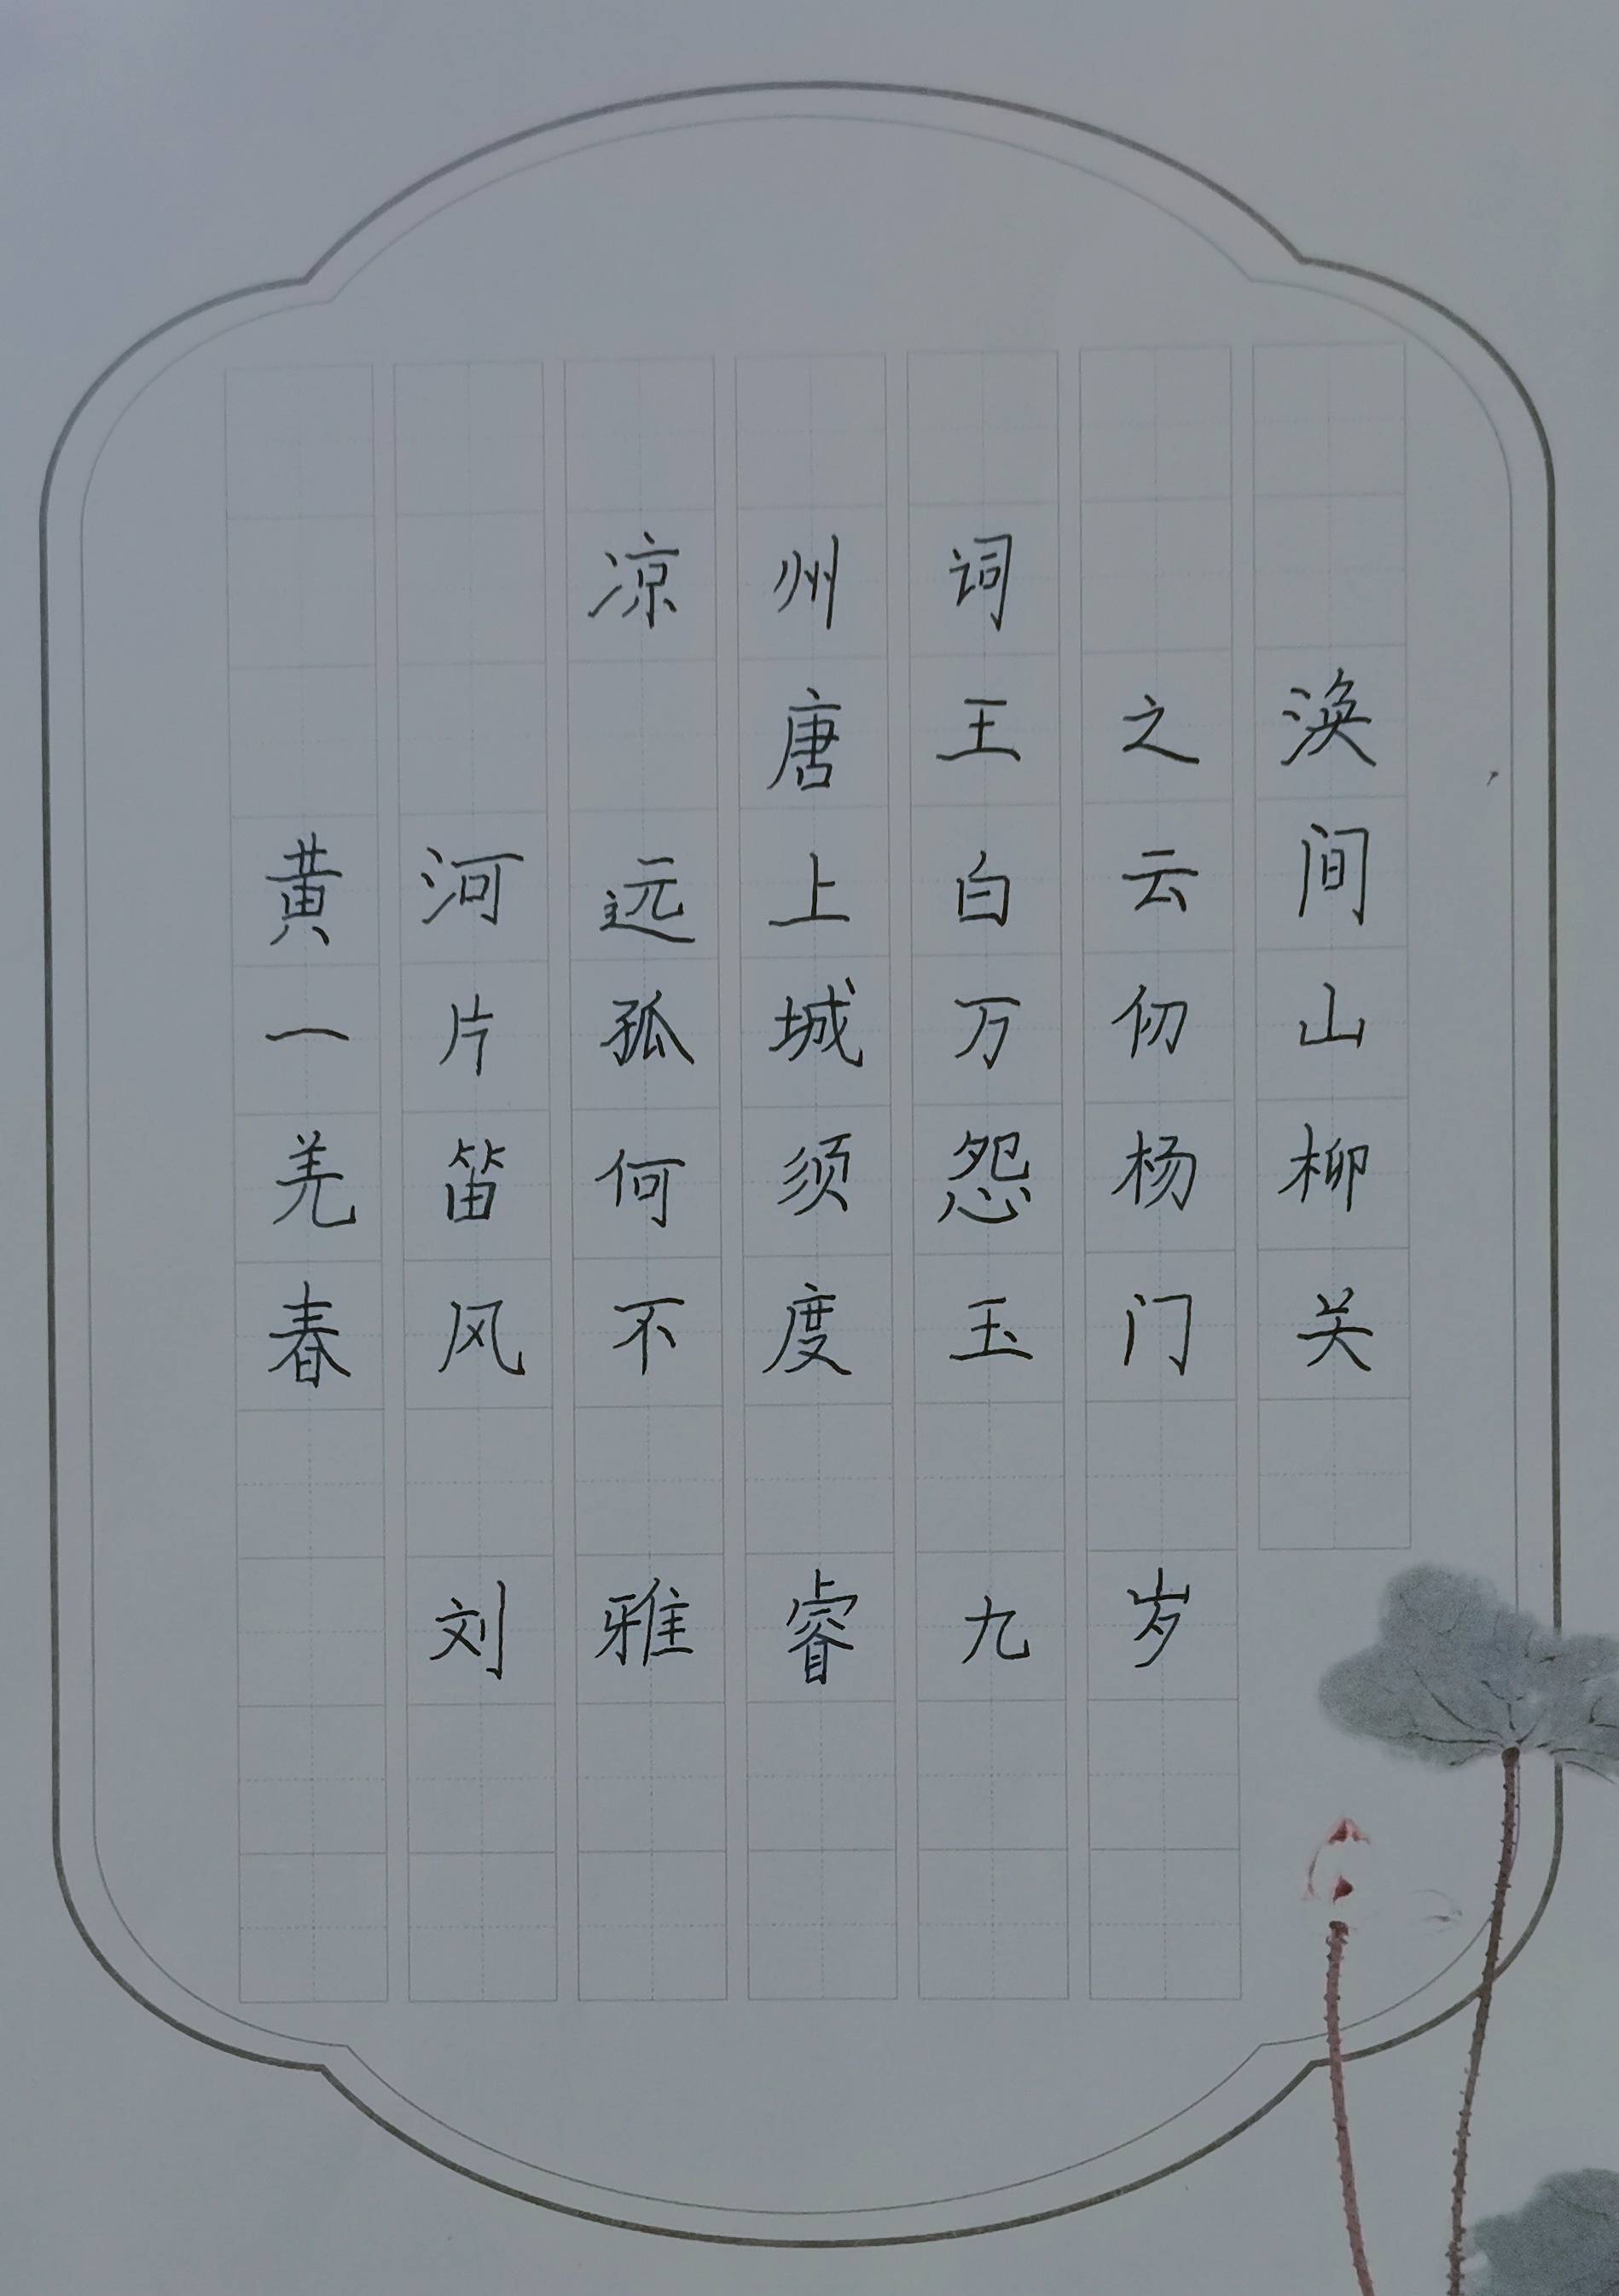 凉州词
唐王之涣
黄河远上白云间
一片孤城万仞山
羌笛何须怨杨柳
春风不度玉门关
刘雅睿九岁